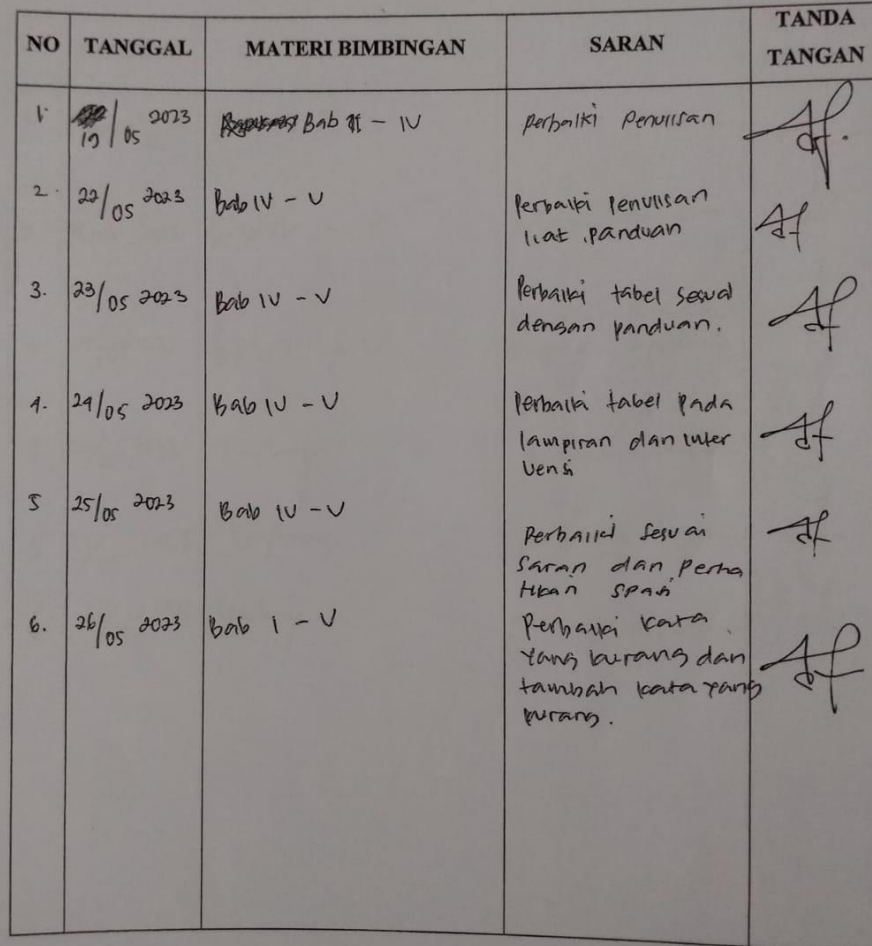 NO TANGGAL MATERI BIMBINGAN SARAN TANDA TANGAN
1. 19/05 2023 Bab II - IV Perbaiki Penulisan
2. 22/05 2023 Bab IV - V Perbaiki Penulisan
liat panduan
3. 23/05 2023 Bab IV - V Perbaiki tabel sesuai
dengan panduan.
4. 24/05 2023 Bab IV - V Perbaiki tabel pada
lampiran dan inter
vensi
5 25/05 2023 Bab IV - V
Perbaiki sesuai
saran dan perha
tikan spasi
6. 26/05 2023 Bab I - V Perbaiki kata
yang kurang dan
tambah kata yang
kurang.